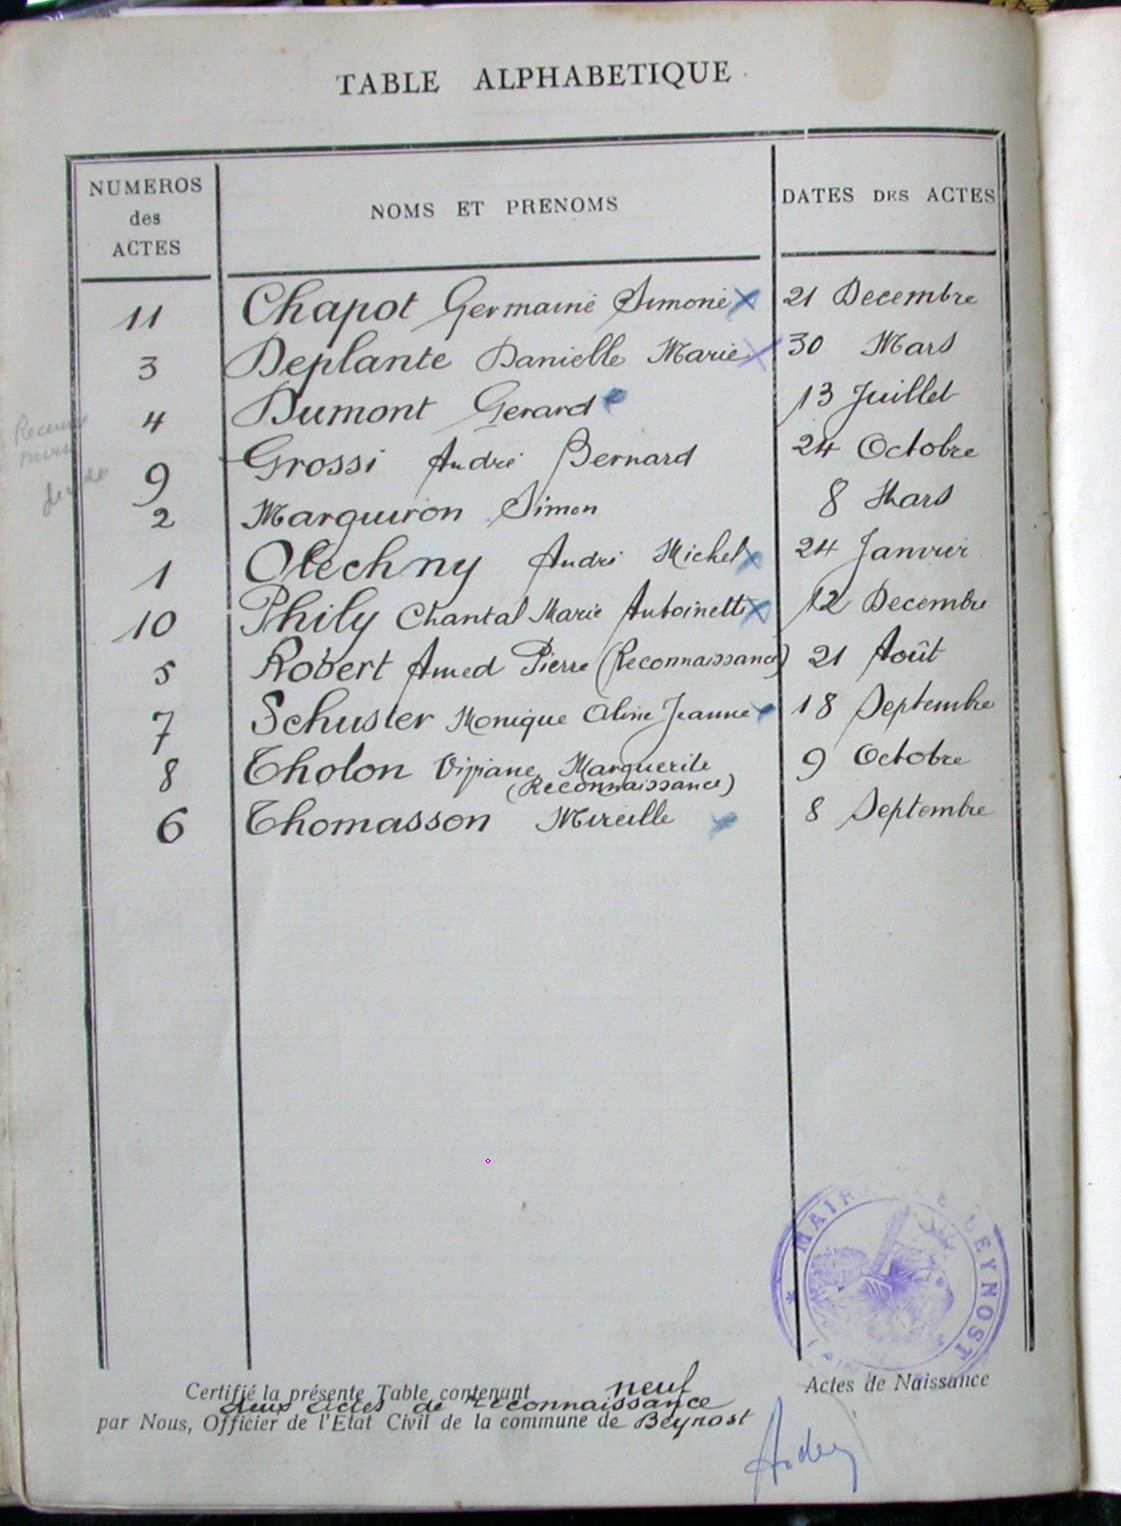 TABLE ALPHABETIQUE
NUMEROS des ACTES
NOMS ET PRENOMS
DATES DES ACTES
11 Chapot Germaine Simone 21 Decembre
3 Deplante Danielle Marie 30 Mars
4 Dumont Gerard 13 Juillet
9 Grossi André Bernard 24 Octobre
2 Marguiron Simon 8 Mars
1 Olechny André Michel 24 Janvier
10 Phily Chantal Marie Antoinette 12 Decembre
5 Robert Amed Pierre (Reconnaissance) 21 Août
7 Schuster Monique Aline Jeanne 18 Septembre
8 Tholon Viviane Marguerite 9 Octobre
(Reconnaissance)
6 Thomasson Mireille 8 Septembre
MAIRIE DE BEYNOST
Certifié la présente Table contenant neuf Actes de Naissance
deux actes de reconnaissance
par Nous, Officier de l'Etat Civil de la commune de Beynost